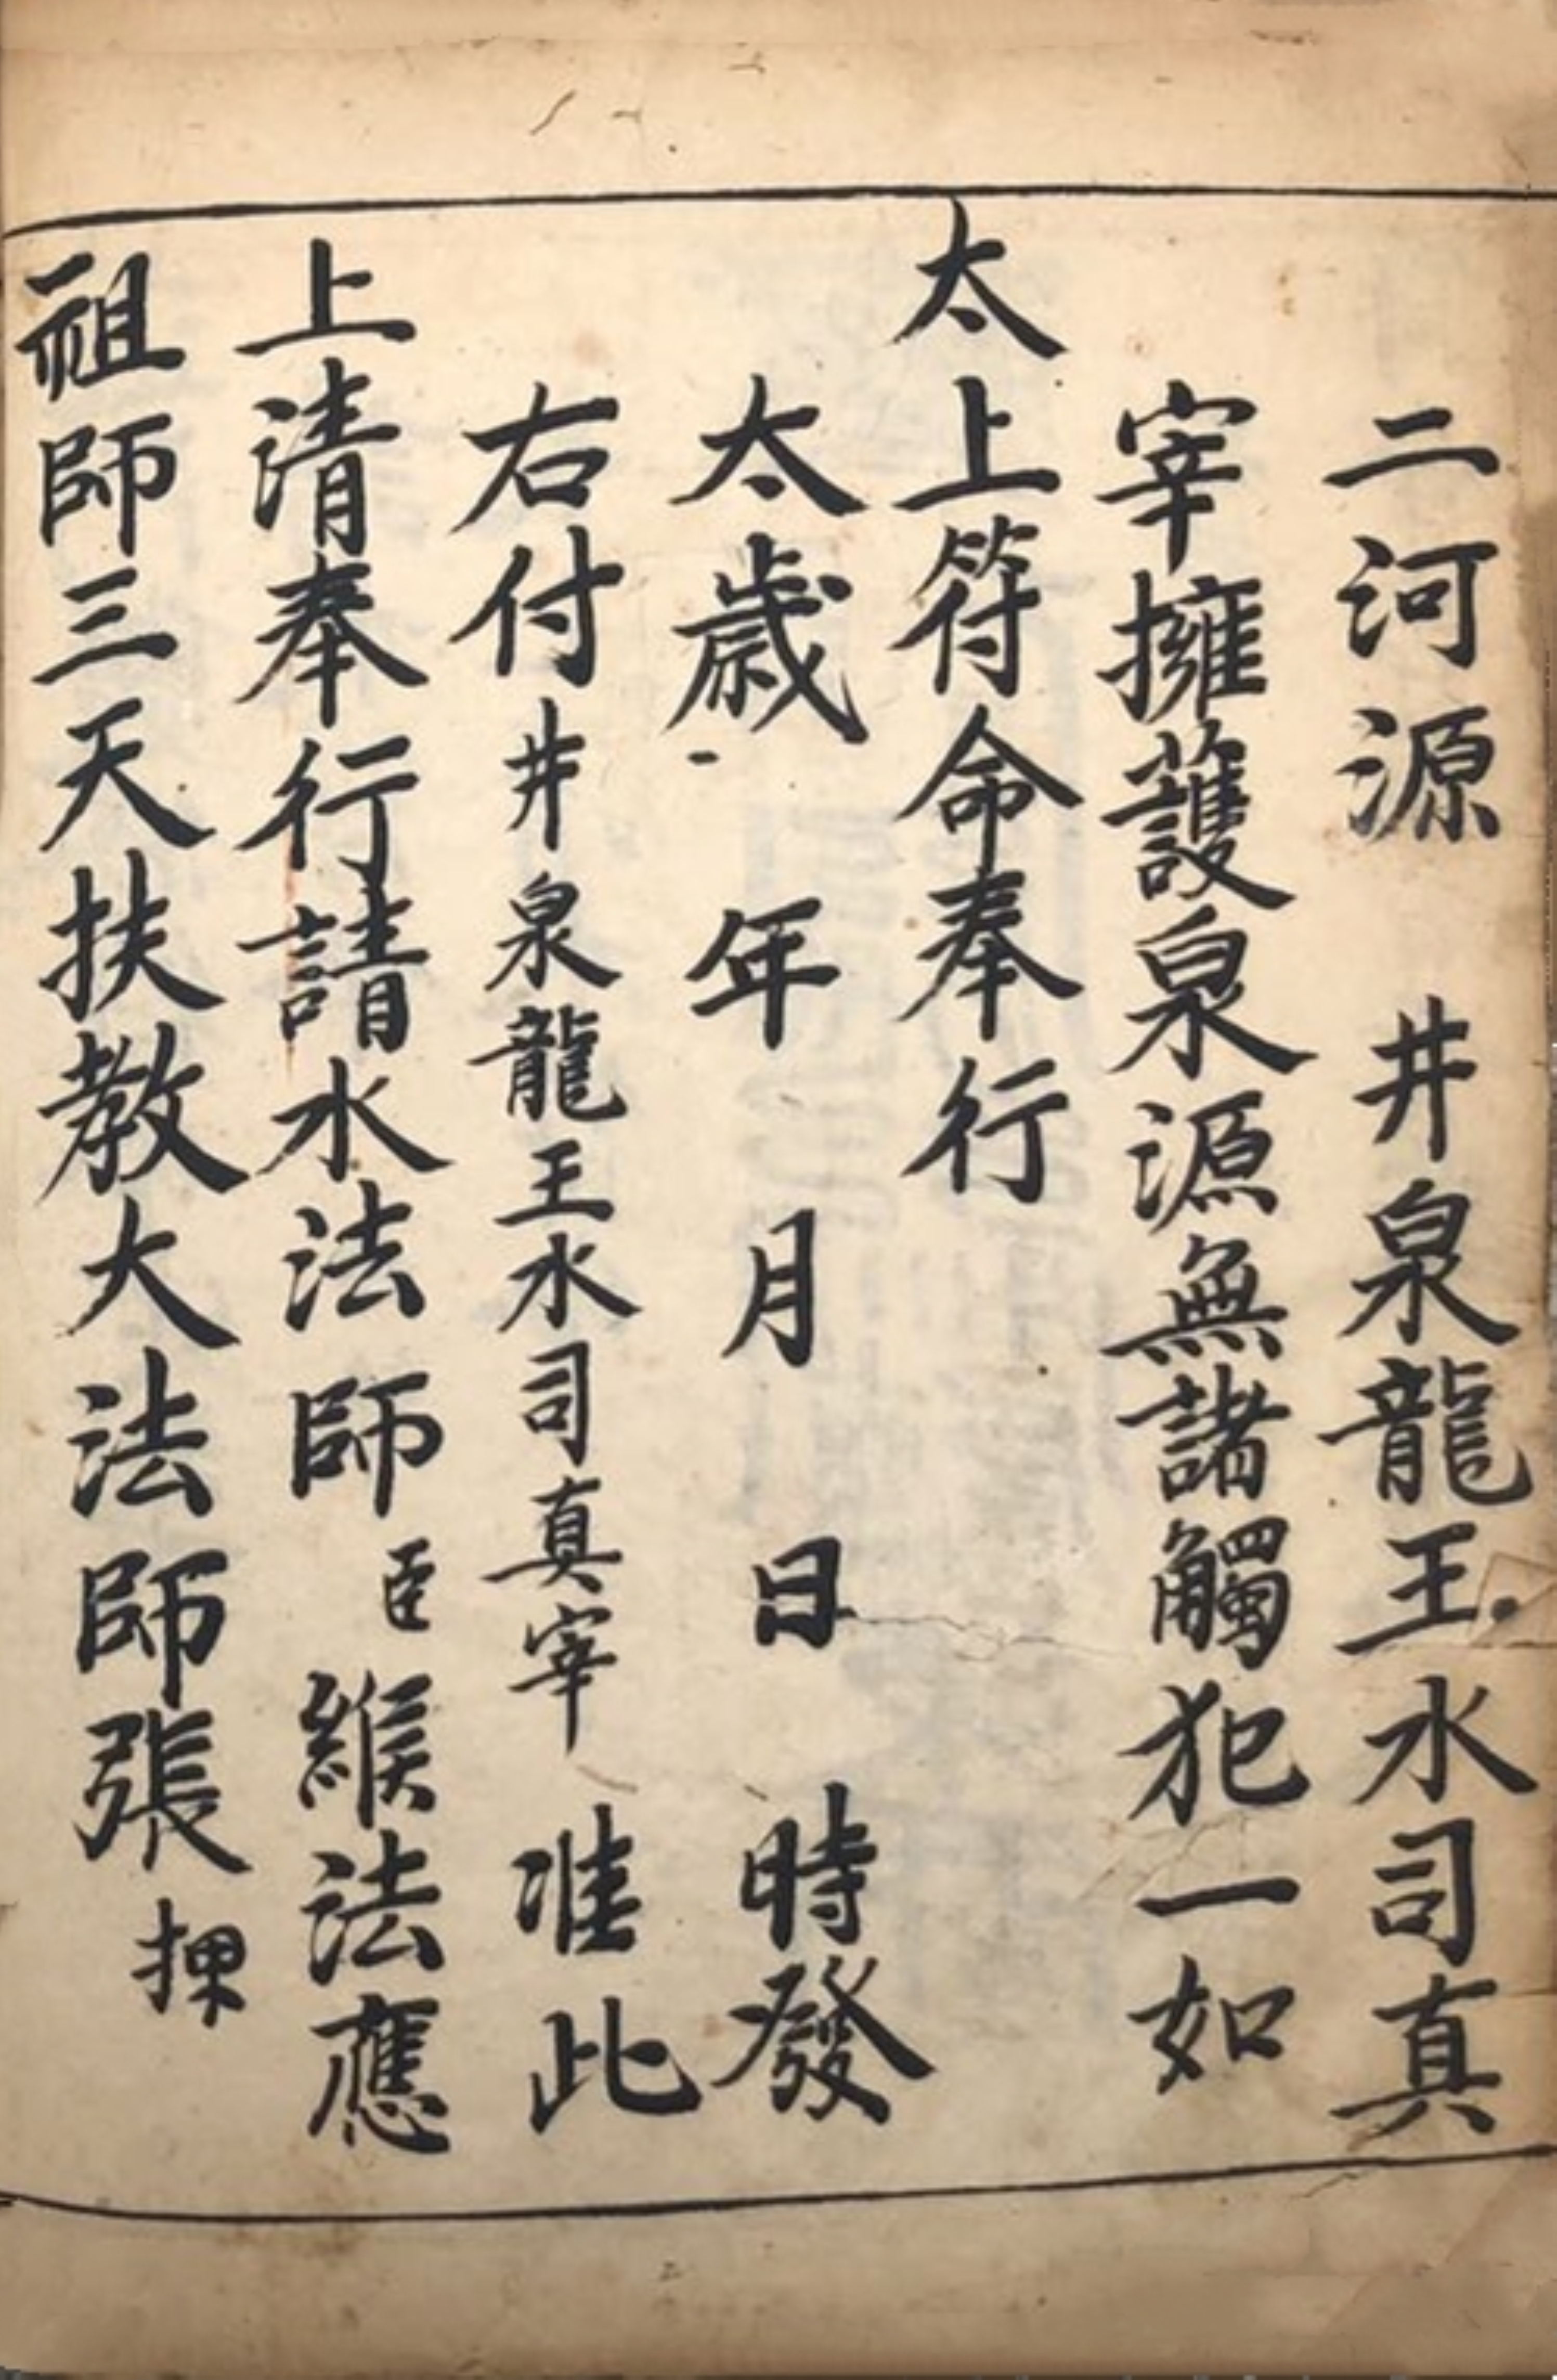 二河源　井泉龍王水司真
宰擁護泉源無諸觸犯一如
太上符命奉行
太歲　年　月　日　時發
右付井泉龍王水司真宰　准此
上清奉行請水法師臣　緱法應
祖師三天扶教大法師張　押